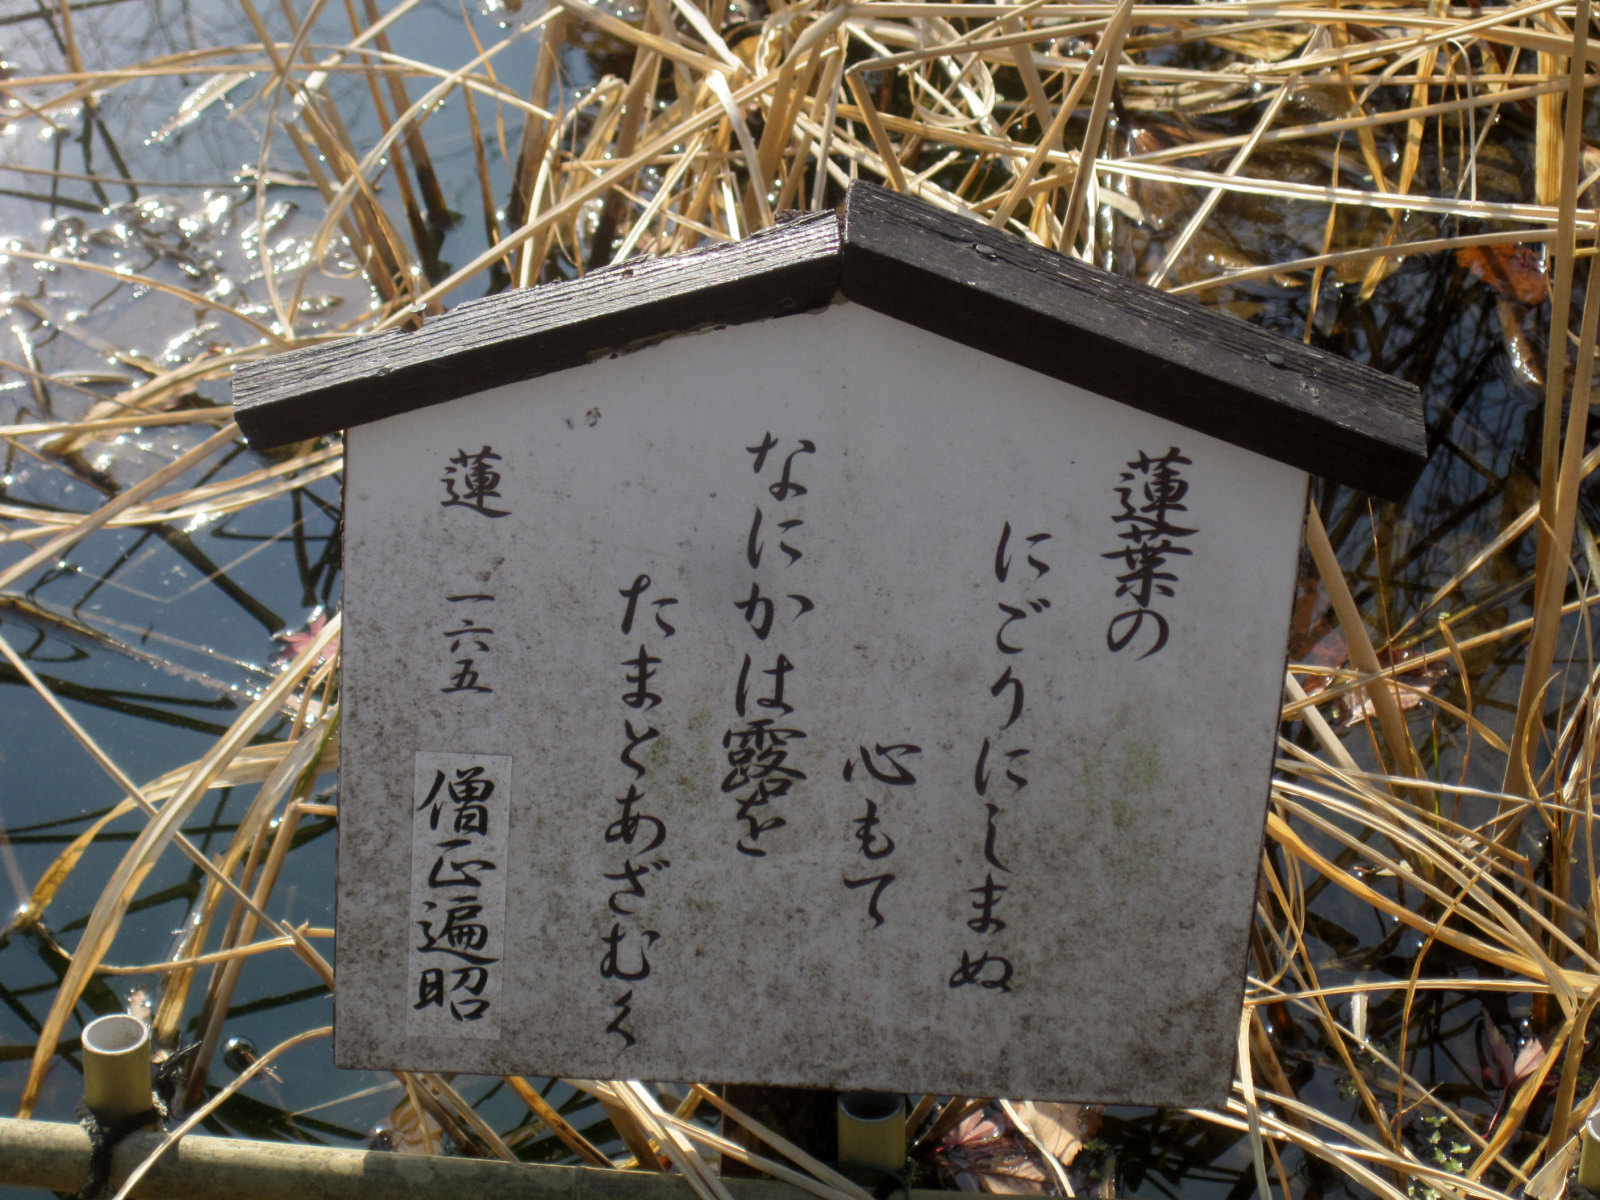 蓮葉の
にごりにしまぬ
心もて
なにかは露を
たまとあざむく
蓮 一六五 僧正遍昭